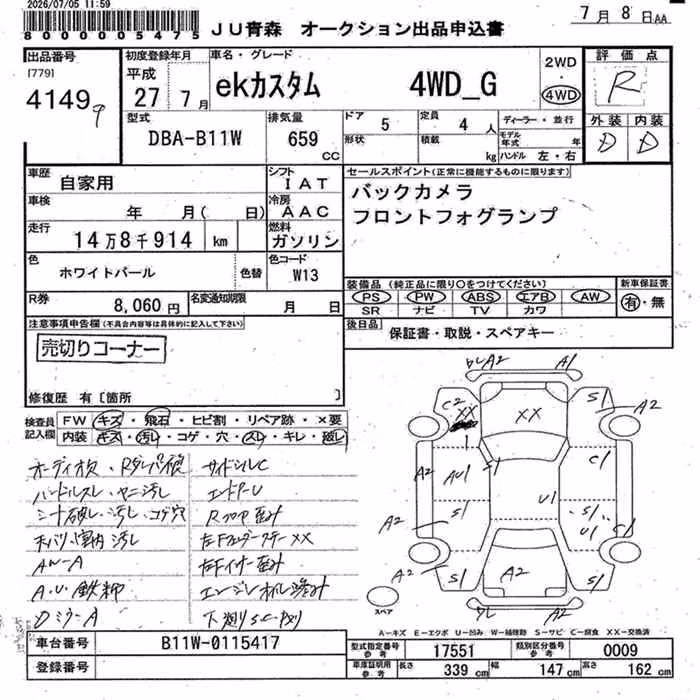 2026/07/05 11:59
8000005475
JU青森 オークション出品申込書
7月8日AA
出品番号
[779]
4149
初度登録年月
平成
27年7月
車名・グレード
ekカスタム 4WD_G
2WD
4WD
評価点
R
外装 内装
D D
型式
DBA-B11W
排気量
659
CC
ドア
5
形状
定員
4人
積載
kg
ディーラー・並行
モデル年式 年
ハンドル 左・右
車歴
自家用
シフト
IAT
車検
年 月( 日)
冷房
AAC
走行
14万8千914 km
燃料
ガソリン
色
ホワイトパール
色替
色コード
W13
R券
8,060円
名変通知期限
月 日
セールスポイント(正常に機能するものに限ります)
バックカメラ
フロントフォグランプ
装備品(純正品に限り○をつけてください)
PS PW ABS エアB AW
SR ナビ TV カワ
新車保証書
有・無
後日品
保証書・取説・スペアキー
注意事項申告欄(不具合内容等は具体的に記入して下さい)
売切りコーナー
修復歴 有〔箇所 〕
検査員記入欄
FW キズ・飛石・ヒビ割・リペア跡・×要
内装 キズ・汚れ・コゲ・穴・スレ・キレ・破レ
ハンドルスレ・ヤニ汚レ
シート破レ・汚レ・コゲ穴
AW-A
A.U.鉄粉
Dミラー A
サイドシルC
エンドアーU
下廻りS.C
A2 A1
C2 XX XX S1 A2
A2 AU1 S1 C1
A2 S1 U1 S1 U1 A2
A2 S1 A2 S1
スペア
A-キズ E-エクボ U-凹み W-補修跡 S-サビ C-腐食 XX-交換済
車台番号
B11W-0115417
登録番号
型式指定番号
参考
17551
類別区分番号
参考
0009
車庫証明用
参考
長さ
339 cm
幅
147 cm
高さ
162 cm